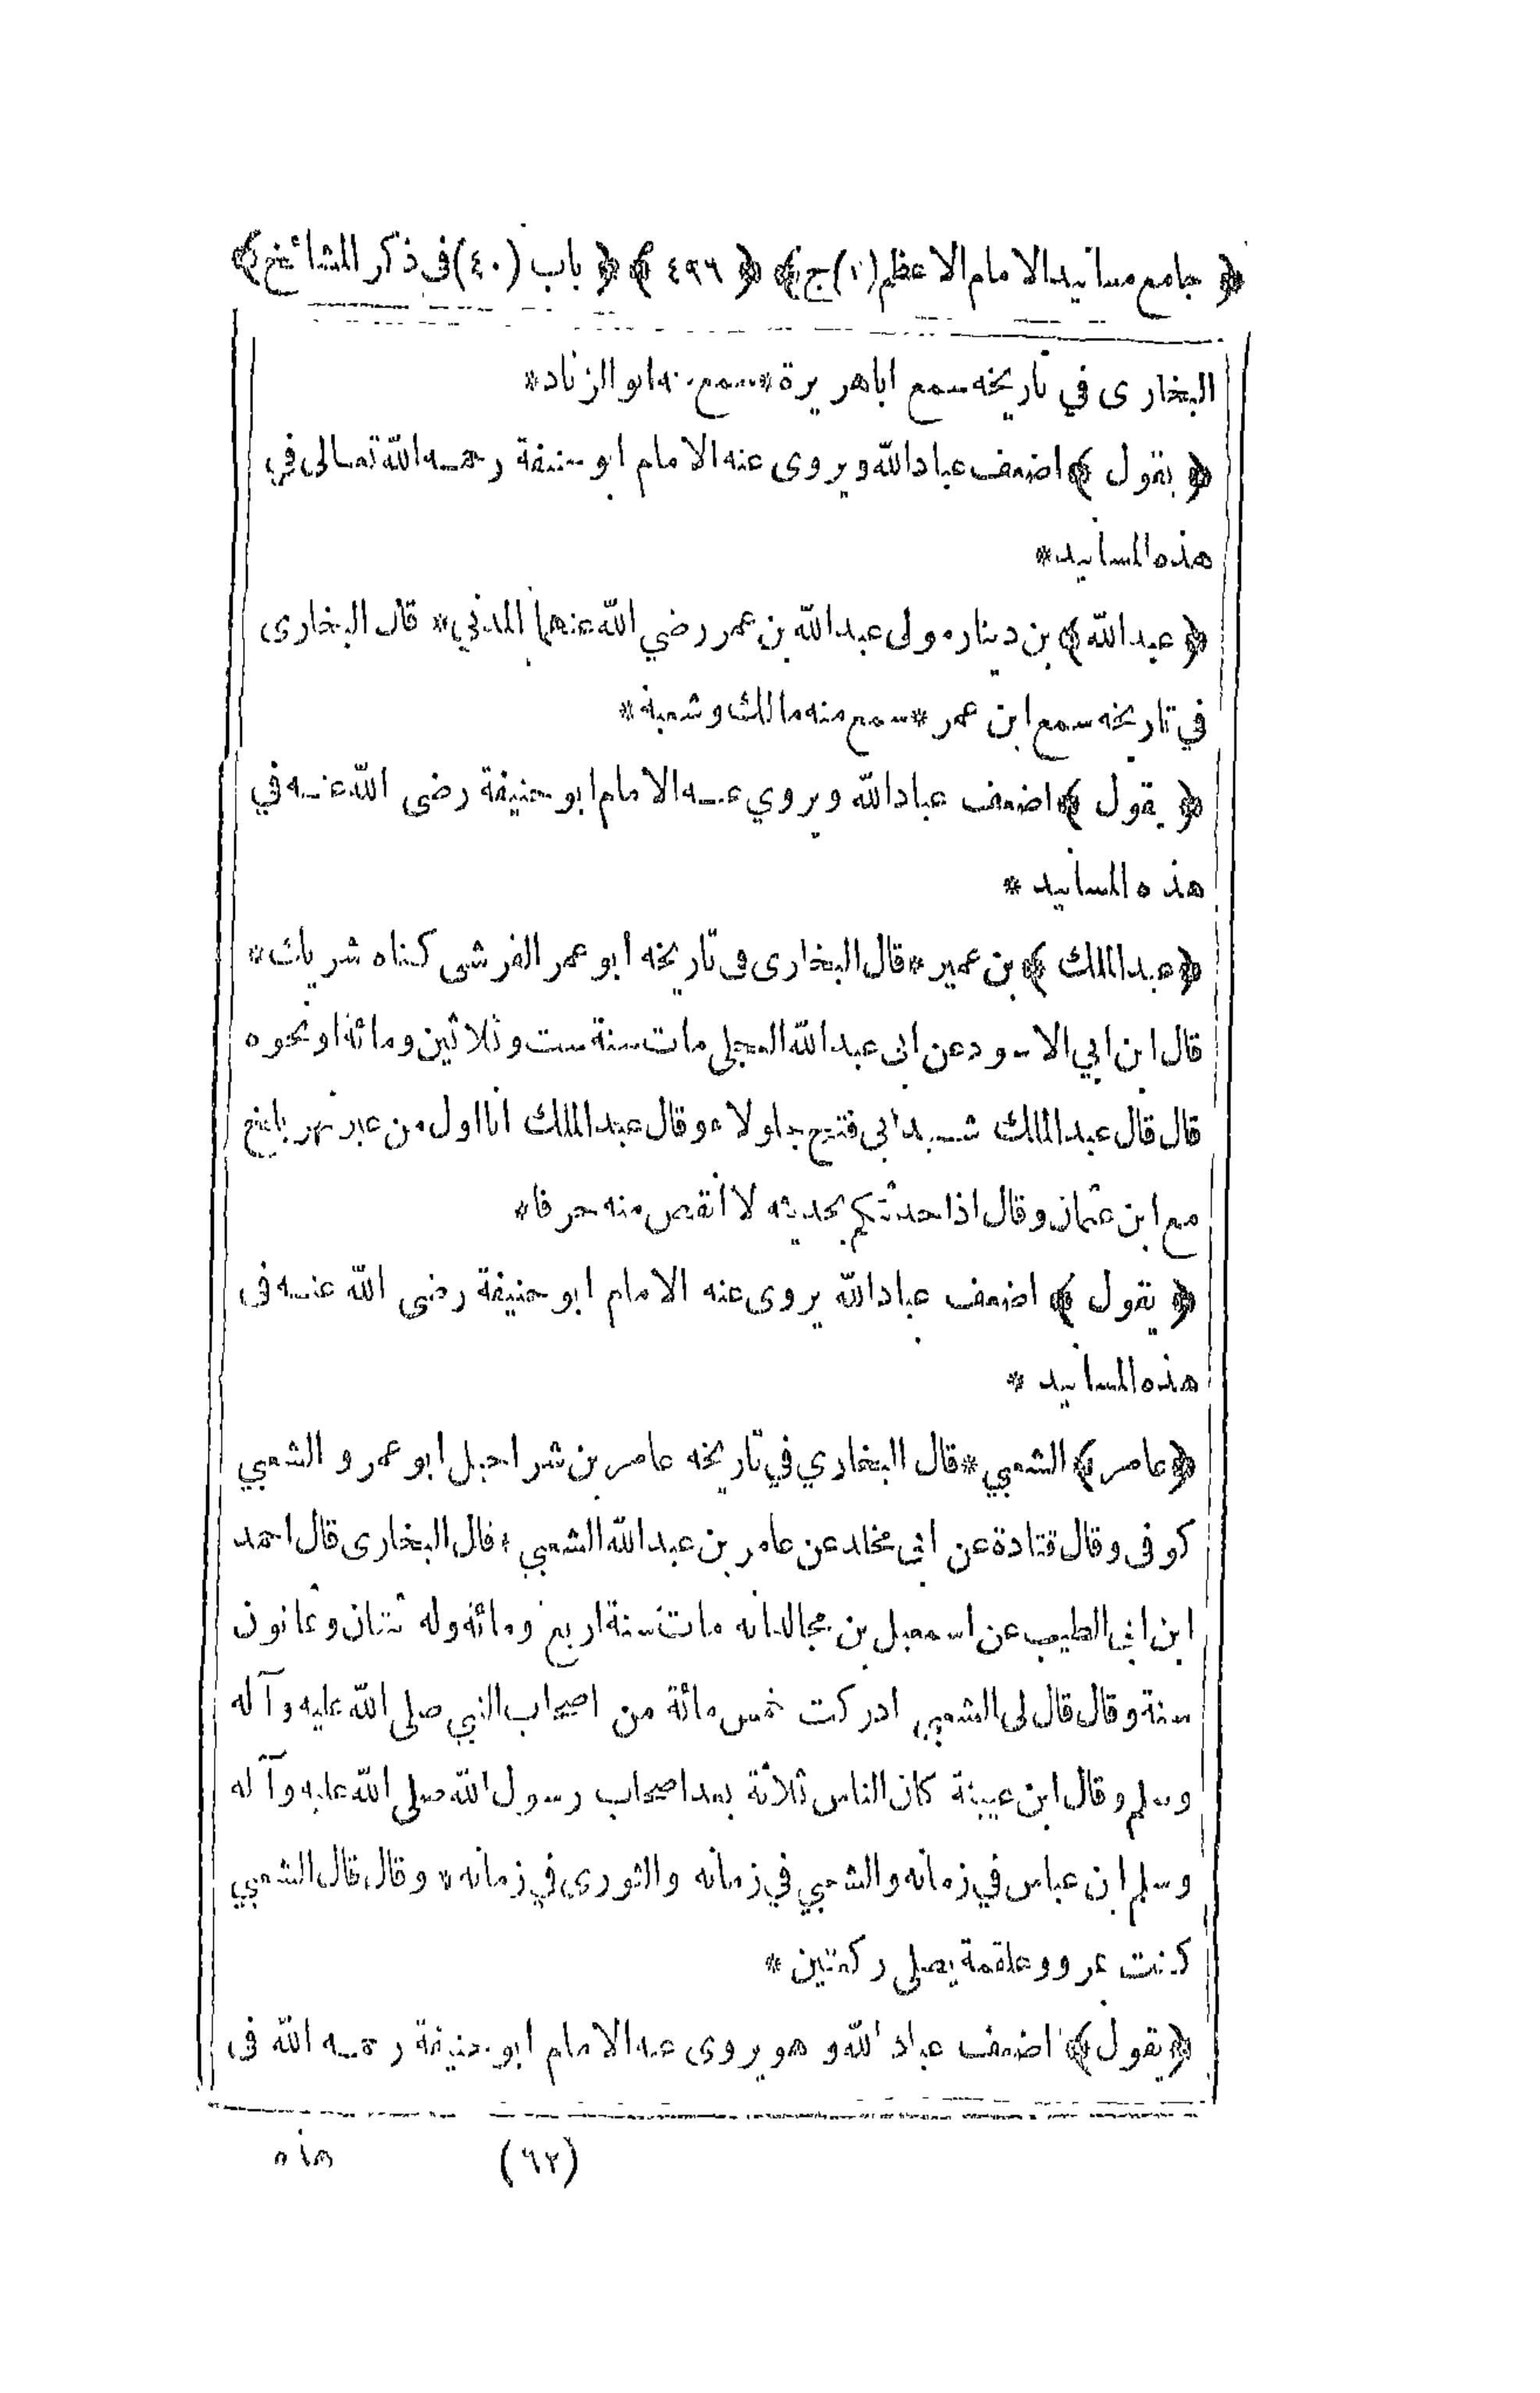 ﴿ جامع مسانيد الامام الاعظم (١) ج ﴾ ﴿ ٤٩٦ ﴾ ﴿ باب (٤٠) فى ذكر المشائخ ﴾
البخارى في تاريخه سمع اباهريرة * سمع منه ابو الزناد *
﴿ يقول ﴾ اضعف عباد الله ويروى عنه الامام ابو حنيفة رحمه الله تعالى في
هذه المسانيد *
﴿ عبد الله ﴾ بن دينار مولى عبد الله بن عمر رضي الله عنهما المدني * قال البخارى
في تاريخه سمع ابن عمر * سمع منه مالك وشعبة *
﴿ يقول ﴾ اضعف عباد الله ويروي عنه الامام ابو حنيفة رضى الله عنه في
هذه المسانيد *
﴿ عبد الملك ﴾ بن عمير * قال البخارى فى تاريخه ابو عمر القرشى كناه شريك *
قال ابن ابي الاسود عن ابى عبد الله العجلى مات سنة ست وثلاثين ومائة او نحوه
قال قال عبد الملك شهد ابى فتح جلولاء وقال عبد الملك انا اول من عبر نهر بلخ
مع ابن عثمان وقال اذا حدثتكم بحديث لا انقص منه حرفا *
﴿ يقول ﴾ اضعف عباد الله يروى عنه الامام ابو حنيفة رضى الله عنه فى
هذه المسانيد *
﴿ عامر ﴾ الشعبي * قال البخاري في تاريخه عامر بن شراحيل ابو عمرو الشعبي
كوفى وقال قتادة عن ابى مخلد عن عامر بن عبد الله الشعبي * قال البخارى قال احمد
ابن ابى الطيب عن اسمعيل بن مجالد انه مات سنة اربع ومائة وله ثنتان وثمانون
سنة وقال قال لى الشعبي ادركت خمس مائة من اصحاب النبي صلى الله عليه وآله
وسلم وقال ابن عيينة كان الناس ثلاثة بعد اصحاب رسول الله صلى الله عليه وآله
وسلم ابن عباس في زمانه والشعبي في زمانه والثورى في زمانه * وقال قال الشعبي
كنت وعلقمة يصلى ركعتين *
﴿ يقول ﴾ اضعف عباد الله وهو يروى عنه الامام ابو حنيفة رحمه الله فى
(٦٢) هذه